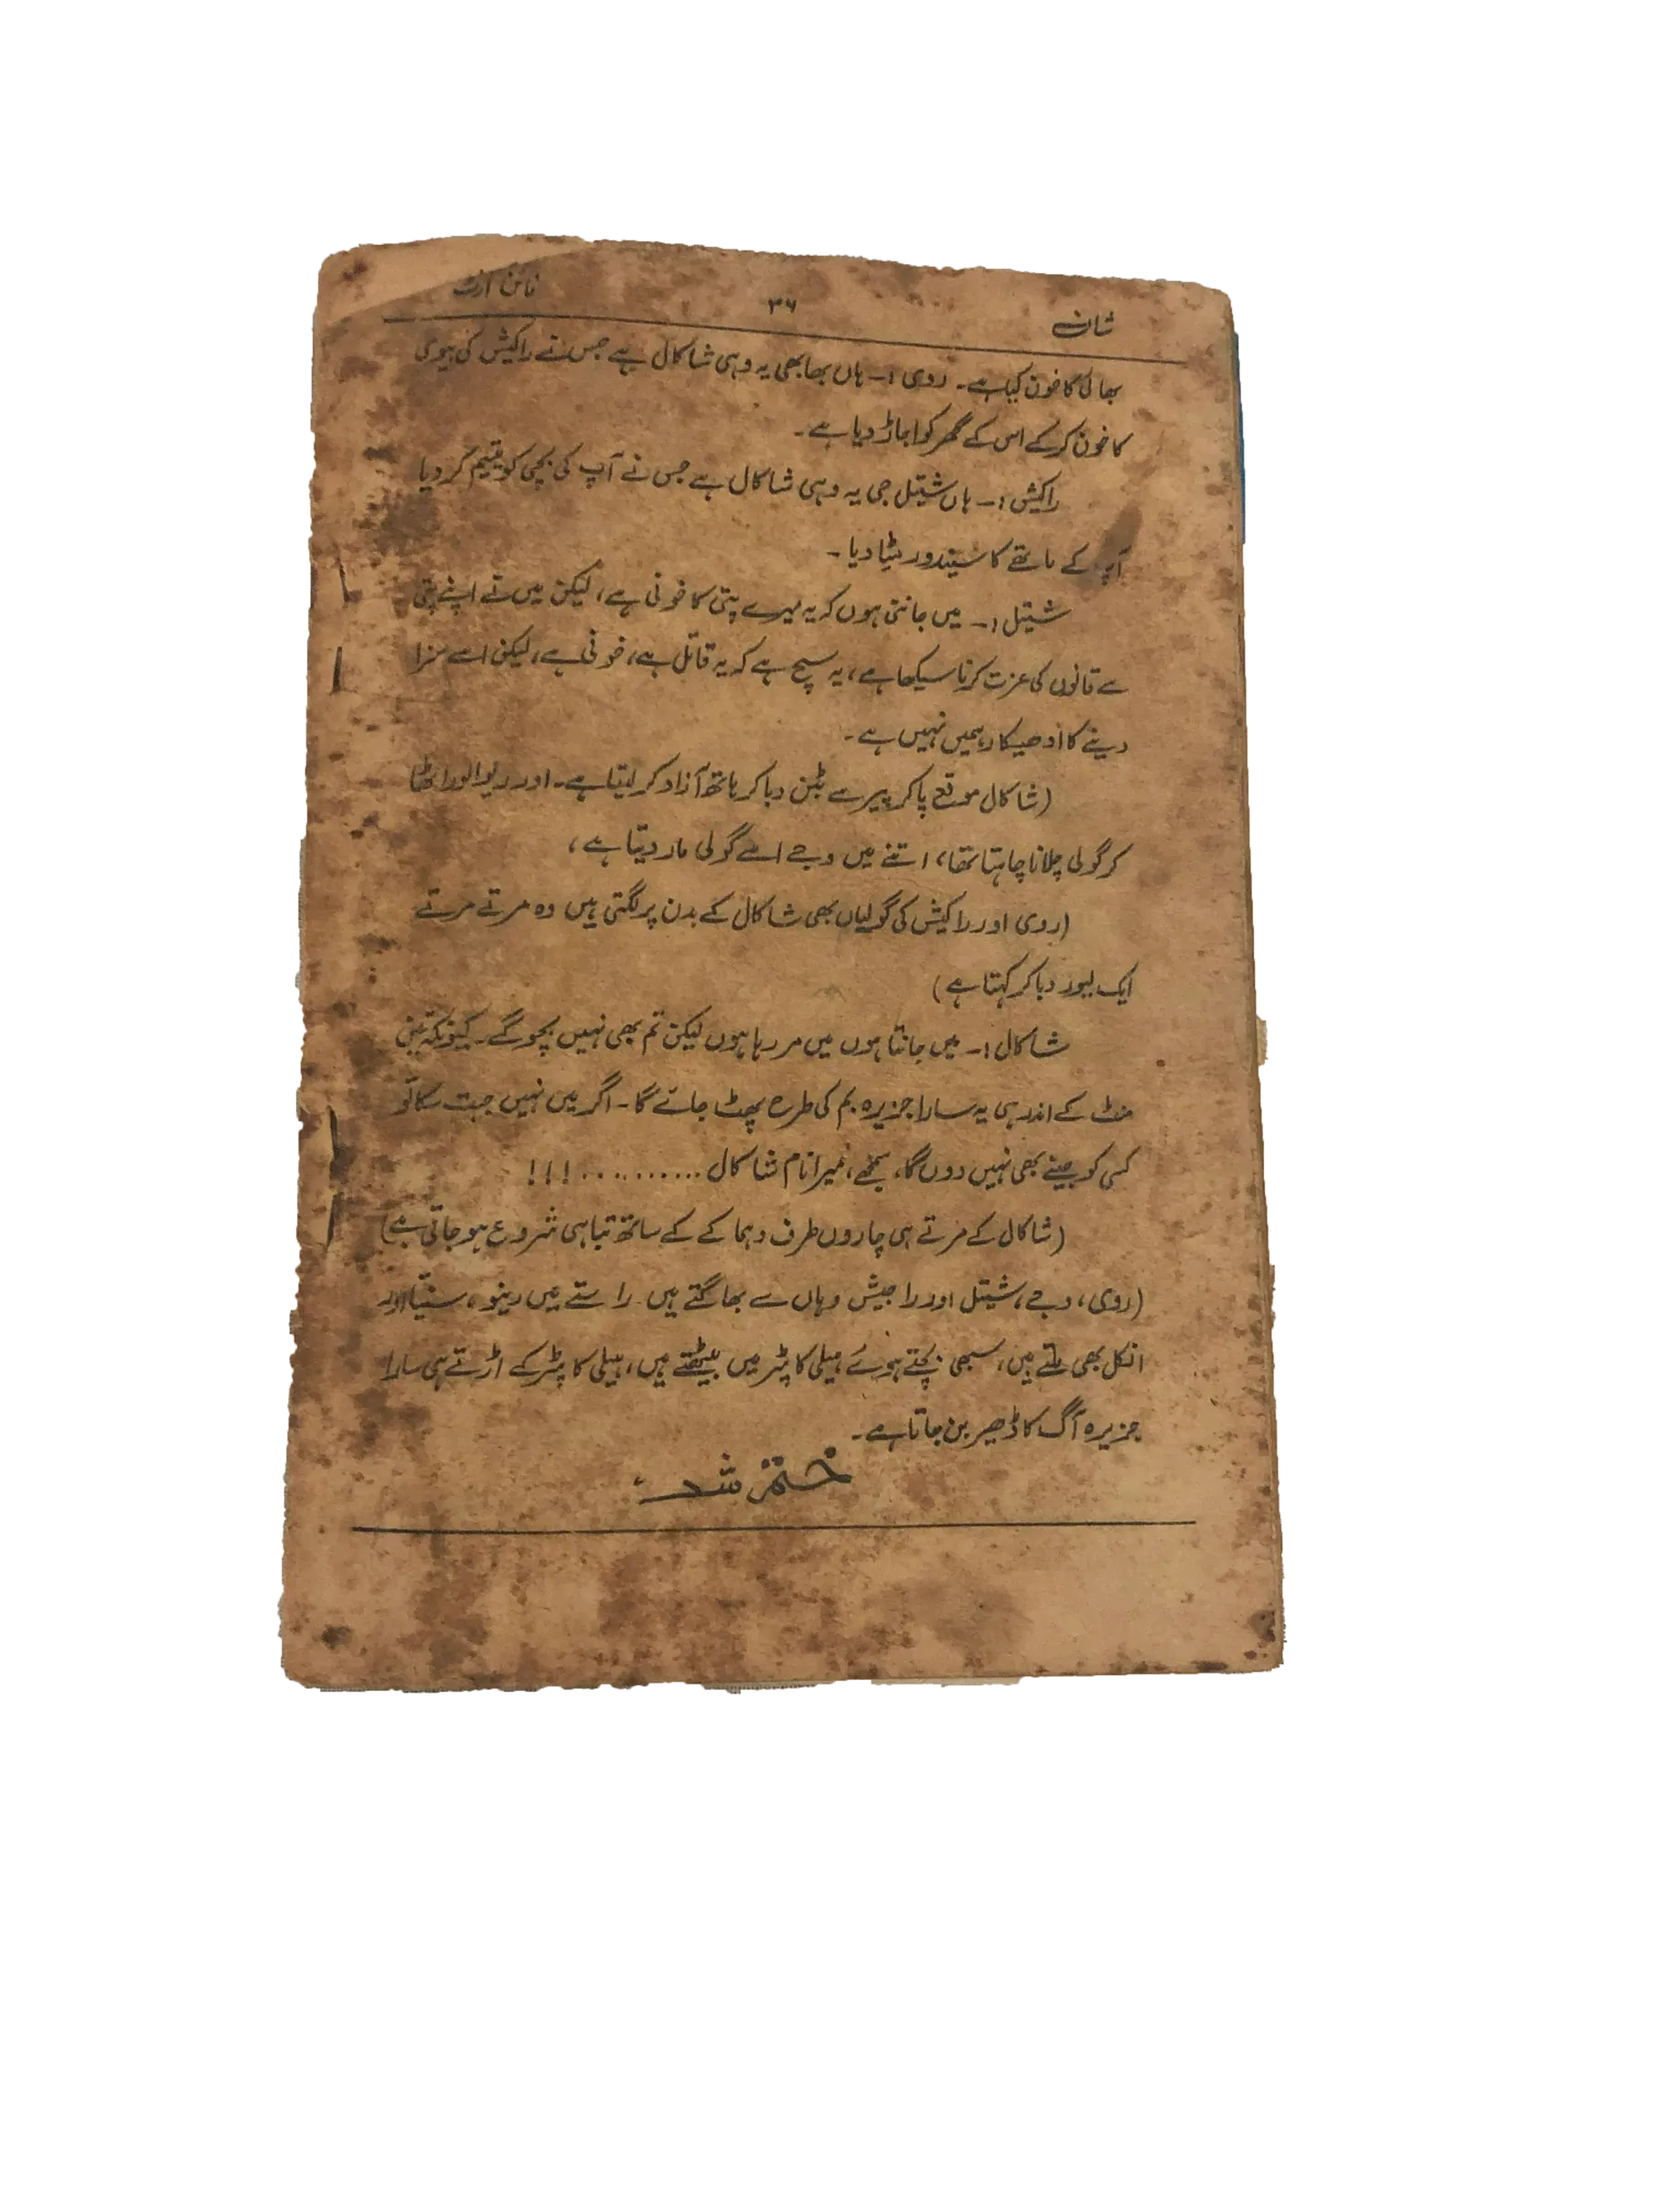 شان ۳۶ فائن آرٹ
بھائی کا خون کیا ہے۔ روی :۔ ہاں بھابھی یہ وہی شاکال ہے جس نے راکیش کی بیوی
کا خون کرکے اس کے گھر کو اجاڑ دیا ہے۔
راکیش :۔ ہاں شیتل جی یہ وہی شاکال ہے جس نے آپ کی بچی کو یتیم کر دیا
آپ کے ماتھے کا سیندور مٹا دیا۔
شیتل :۔ میں جانتی ہوں کہ یہ میرے پتی کا خونی ہے، لیکن میں نے اپنے پتی
سے قانوں کی عزت کرنا سیکھا ہے، یہ سچ ہے کہ یہ قاتل ہے، خونی ہے، لیکن اسے سزا
دینے کا ادھیکار ہمیں نہیں ہے۔
(شاکال موقع پاکر پیر سے بٹن دباکر ہاتھ آزاد کر لیتا ہے۔ اور ریوالور اٹھا
کر گولی چلانا چاہتا تھا، اتنے میں وجے اسے گولی مار دیتا ہے،
(روی اور راکیش کی گولیاں بھی شاکال کے بدن پر لگتی ہیں وہ مرتے مرتے
ایک لیور دباکر کہتا ہے)
شاکال :۔ میں جانتا ہوں میں مر رہا ہوں لیکن تم بھی نہیں بچوگے۔ کیونکہ تین
منٹ کے اندر ہی یہ سارا جزیرہ بم کی طرح پھٹ جائے گا۔ اگر میں نہیں جیت سکا تو
کسی کو جینے بھی نہیں دوں گا، سمجھے، میرا نام شاکال .......... !!!
(شاکال کے مرتے ہی چاروں طرف دہماکے کے ساتھ تباہی شروع ہو جاتی ہے)
(روی، وجے، شیتل اور راجیش وہاں سے بھاگتے ہیں راستے میں رینو، سنیتا اور
انکل بھی ملتے ہیں، سبھی بچتے ہوئے ہیلی کاپٹر میں بیٹھتے ہیں، ہیلی کاپٹر کے اڑتے ہی سارا
جزیرہ آگ کا ڈھیر بن جاتا ہے۔
ختم شد